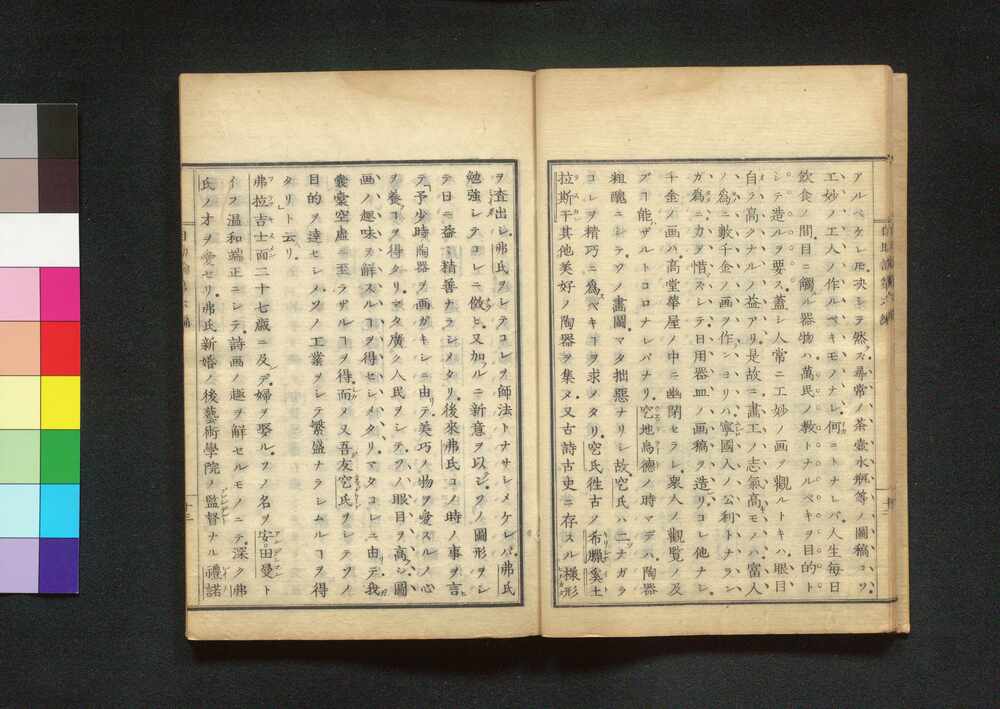 アルベケレ𪜈決シテ然ラズ尋常ノ茶壷水瓶等ノ圖稿コソ
工妙ノ工人ノ作ルベキモノナレ何ニトナレバ人生毎日
飲食ノ間目ニ觸ルル器物ハ萬民ノ教トナルベキヲ目的ト
シテ造ルヲ要ス蓋シ人常ニ工妙ノ画ヲ觀ルトキハ眼目
自ラ高クナルノ益アリ是故ニ畫工ノ志氣高キモノハ富人
ノ爲ニ數千金ノ画ヲ作ンヨリハ寧國人ノ公利トナラン
ガ爲ニ力ヲ惜マズシテ日用器皿ノ画稿ヲ造リコレ他ナシ
千金ノ画ハ高堂華屋ノ中ニ幽閉セラレ衆人ノ觀覧ノ及
ブコ能ハザルトコロナレバナリ穵地烏德ノ時マデハ陶器
粗醜ニシテソノ畫圖マタ拙惡ナリシ故穵氏ハ二ナガラ
コレヲ精巧ニ爲スベキヿヲ求メタリ穵氏徃古ノ希臘塋土
拉斯干其他美好ノ陶器ヲ集メ又古詩古史ニ存スル様形
ヲ査出シ弗氏ヲシテコレヲ師法トナサシメケレバ弗氏
勉強シテコレニ倣ヒ又加ルニ新意ヲ以シソノ圖形ヲシ
テ日ニ益々精善ナラシメタリ後來弗氏コノ時ノ事ヲ言
テ予少時陶器ヲ画ガキシニ由テ美巧ノ物ヲ愛スルノ心
ヲ養フヿヲ得タリマタ廣ク人民ヲシテソノ眼目ヲ高シ圖
画ノ趣味ヲ解スルヿヲ得セシメタリマタコレニ由テ我
囊橐空虚ニ至ラザルヿヲ得而メ又吾友穵氏ヲシテソノ
目的ヲ達セシメソノ工業ヲシテ繁盛ナラシムルヿヲ得
タリト云リ
弗拉吉士面二十七歳ニ及デ婦ヲ娶ルソノ名ヲ安田曼ト
イフ温和端正ニシテ詩画ノ趣ヲ解セルモノニテ深ク弗
氏ノ才ヲ愛セリ弗氏新婚ノ後藝術學院ノ監督ナル禮諾